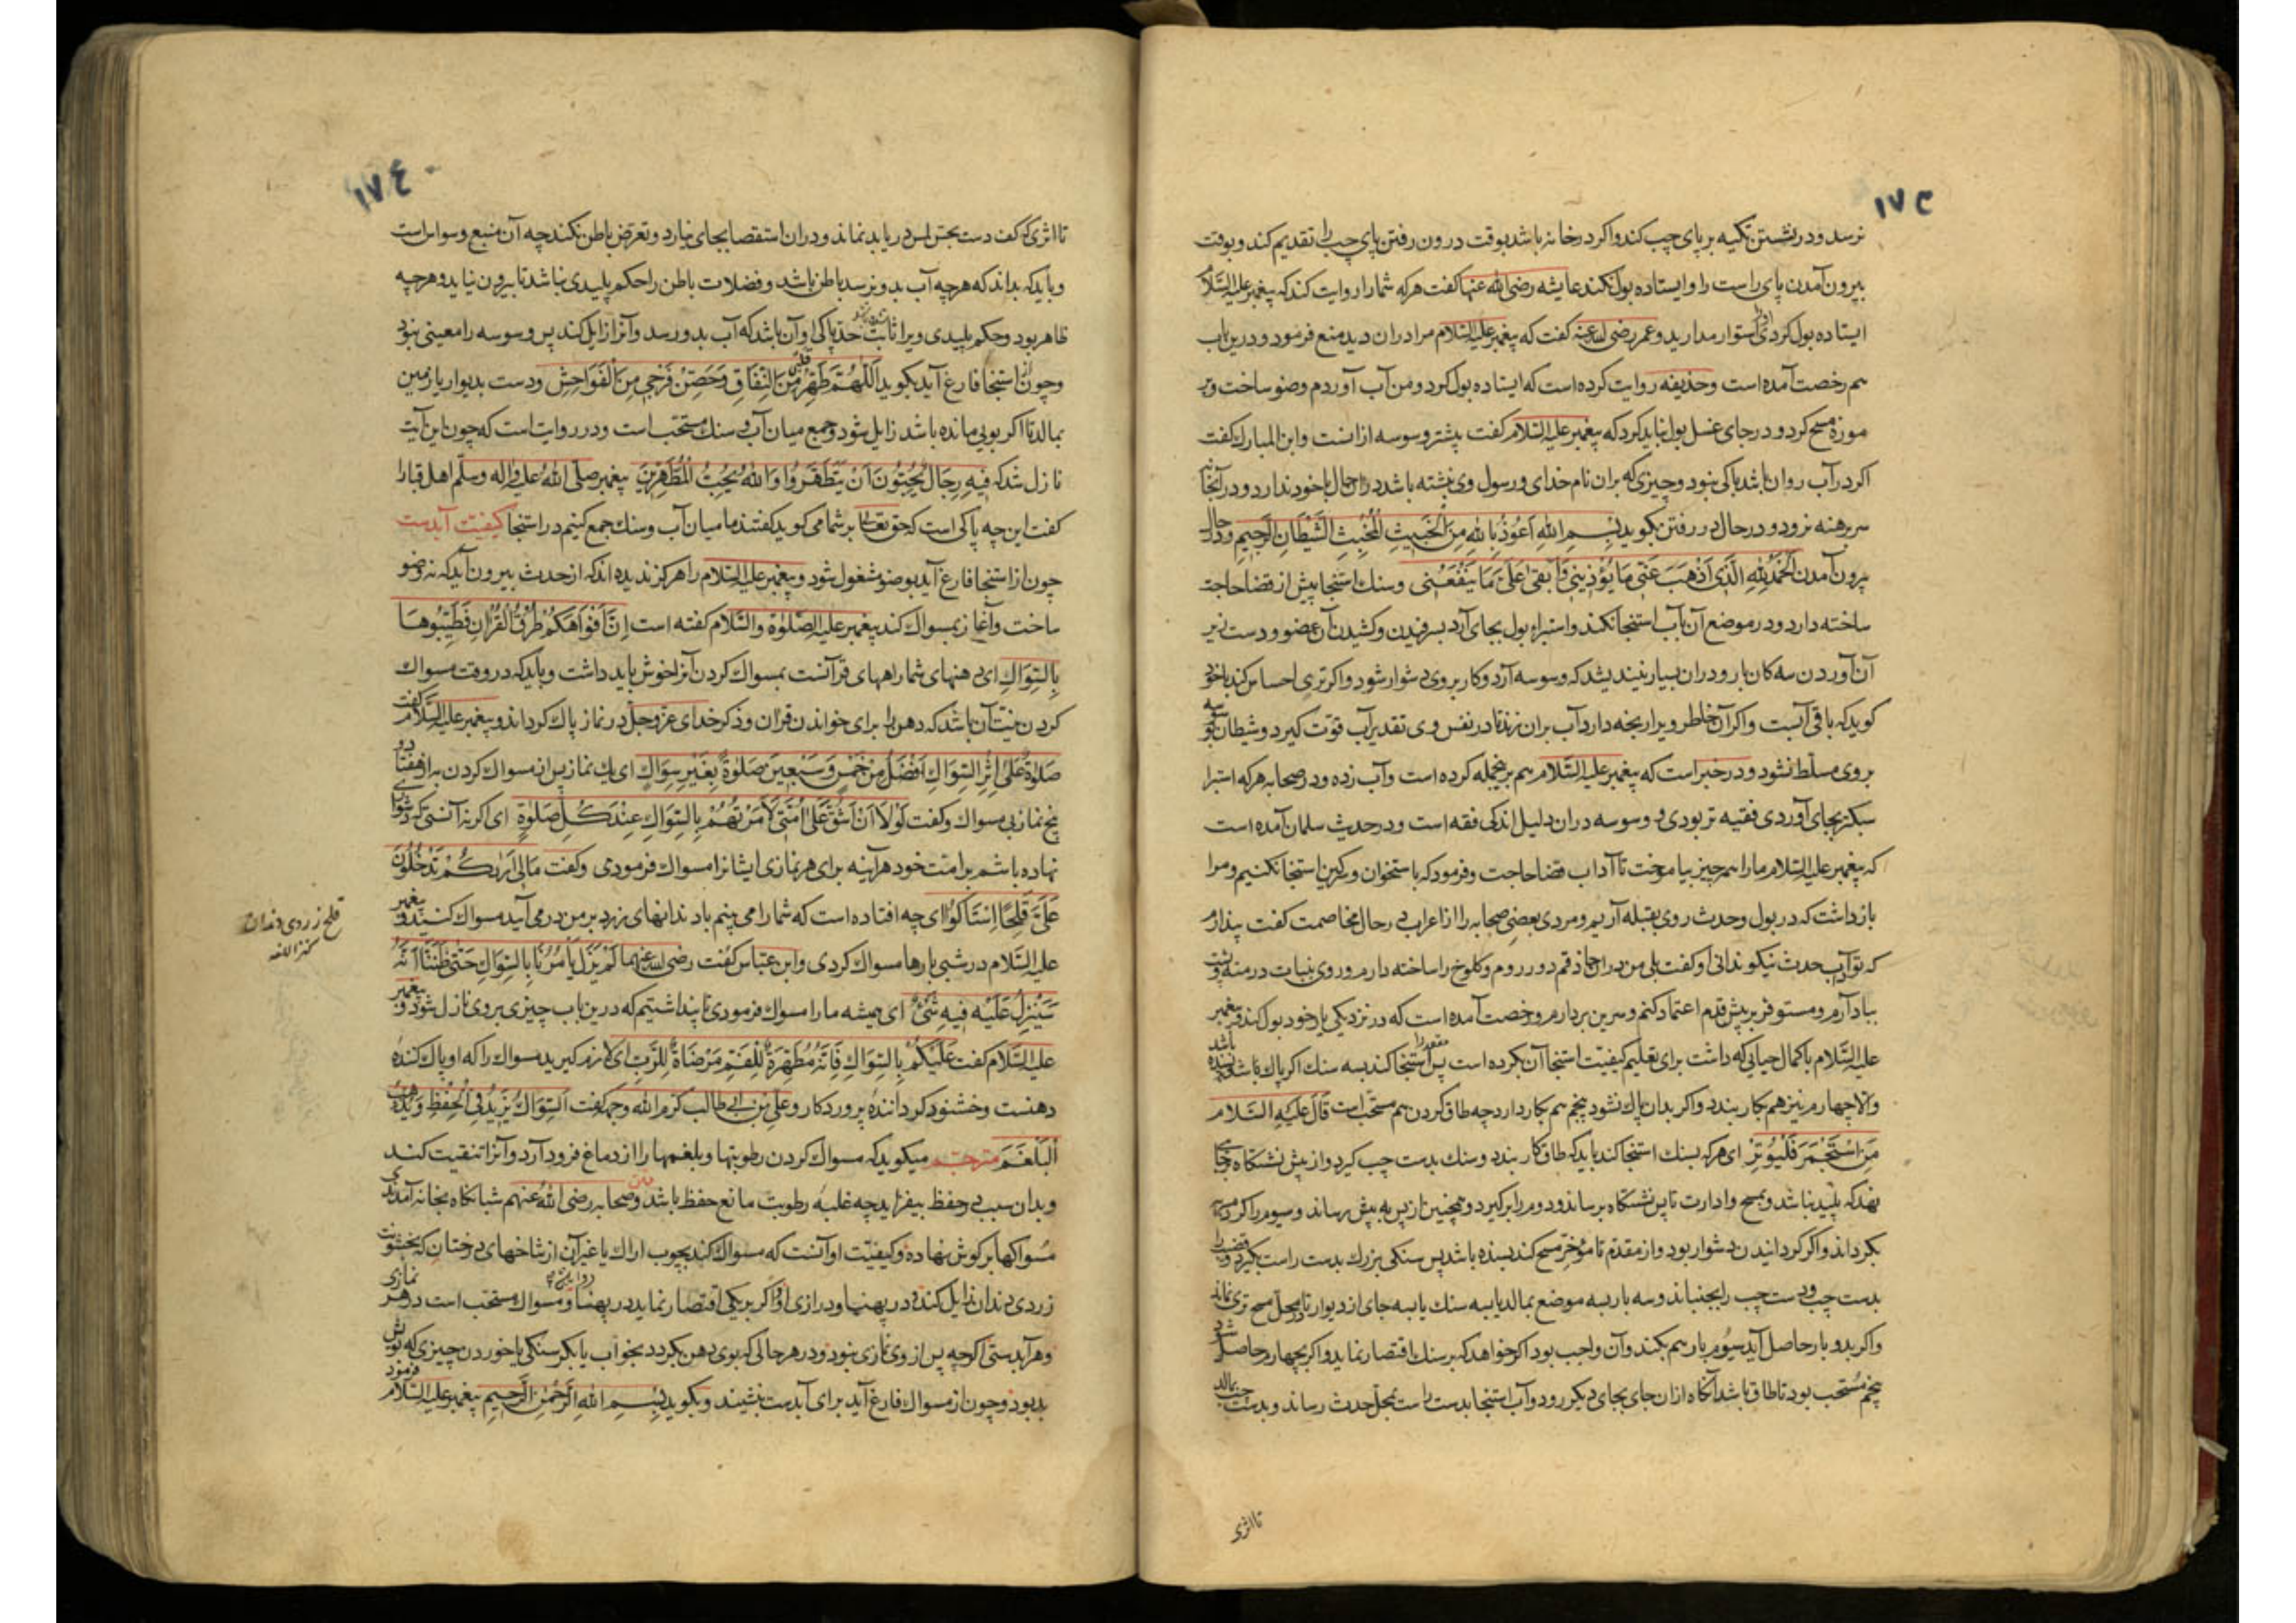 ١٧٣
نرسد ودر نشستن تکیه بر پای چپ کند واکر درخانه باشد بوقت درون رفتن پای چپ را تقدیم کند وبوقت
بیرون آمدن پای راست را وایستاده بول نکند عایشه رضی الله عنها کفت هرکه شمارا روایت کند که پیغمبر علیه السلام
ایستاده بول کردی استوار مدارید وعمر رضی الله عنه کفت که پیغمبر علیه السلام مرا دران دید منع فرمود ودرین باب
هم رخصت آمده است وحذیفه روایت کرده است که ایستاده بول کرد ومن آب آوردم وضو ساخت وبر
موزه مسح کرد ودرجای غسل بول نباید کرد که پیغمبر علیه السلام کفت بیشتر وسوسه ازانست وابن المبارک کفت
اکر درآب روان باشد باکی نبود وچیزی که بران نام خدای ورسول وی نبشته باشد دران حال باخود ندارد ودر آنجا
سر برهنه نرود ودرحال در رفتن بکوید بِسْمِ اللهِ اَعُوذُ بِاللهِ مِنَ الْخَبِیثِ الْمُخْبِثِ الشَّیْطَانِ الرَّجِیمِ ودرحال
بیرون آمدن اَلْحَمْدُ لِلّهِ الَّذِی اَذْهَبَ عَنِّی مَا یُؤْذِینِی وَاَبْقَی عَلَیَّ مَا یَنْفَعُنِی وسنک استنجا پیش از قضا حاجة
ساخته دارد ودر موضع آن بآب استنجا نکند واستبراء بول بجای آرد بسرفیدن وکشیدن آن عضو ودست زیر
آن آوردن سه کان بار ودران بسیار نیندیشد که وسوسه آرد وکار بروی دشوار شود واکر تری احساس کند باخود
کوید که باقی آبست واکر آن خاطر ویرا رنجه دارد آب بران زند تا در نفس وی تقدیر آب قوت کیرد وشیطان بوسوسه
بروی مسلط نشود ودر خبر است که پیغمبر علیه السلام هم برینجمله کرده است وآب زده ودر صحابه هرکه استبرا
سبکتر بجای آوردی فقیه تر بودی و وسوسه دران دلیل اندکی فقه است ودر حدیث سلمان آمده است
که پیغمبر علیه السلام مارا همه چیز بیاموخت تا آداب قضا حاجت وفرمود که باستخوان وسرکین استنجا نکنیم ومرا
بازداشت که در بول وحدث روی بقبله آریم ومردی بعضی صحابه را از اعراب در حال مخاصمت کفت پندارم
که تو آداب حدث نیکو ندانی او کفت بلی من دران حاذقم دور روم وکلوخ را ساخته دارم وروی بنبات درمنه وپشت
بباد آرم ومستوفز بر پیش قدم اعتماد کنم وسرین بردارم ورخصت آمده است که در نزدیکی یار خود بول کند وپیغمبر
علیه السلام باکمال حیایی که داشت برای تعلیم کیفیت استنجا آن بکرده است پس مقعد را استنجا کند بسه سنک اکر پاک باشد بسنده باشد
والا چهارم نیز هم بکار بندد واکر بدان پاک نشود پنجم هم بکار دارد چه طاق کردن هم مستحب است قَالَ عَلَیْهِ السَّلَامُ
مَنِ اسْتَجْمَرَ فَلْیُوتِرْ ای هرکه بسنک استنجا کند باید که طاق کار بندد وسنک بدست چپ کیرد واز پیش نشستکاه برجای
نهد که پلید نباشد وبمسح وادارت تا پس نشستکاه برساند ودوم را بر کیرد وهمچنین از پس به پیش رساند وسیوم را کرد مسربه
بکرداند واکر کردانیدن دشوار بود واز مقدم تا مؤخر مسح کند بسنده باشد پس سنکی بزرک بدست راست بکیرد وقضیب را
بدست چپ ودست چپ را بجنباند وسه بار بسه موضع بمالد یا بسه سنک یا بسه جای از دیوار تا در محل مسح تری نماند
واکر بدو بار حاصل آید سیوم بار هم بکند وآن واجب بود اکر خواهد که بر سنک اقتصار نماید واکر بچهار حاصل شد
پنجم مستحب بود تا طاق باشد آنکاه ازان جای بجای دیکر رود وآب استنجا بدست راست بمحل حدث رساند وبدست چپ بمالد
تا اثری
١٧٤
تا اثری که کف دست بحس لمس دریابد نماند ودران استقصا بجای نیارد وتعرض باطن نکند چه آن منبع وسواس است
وباید که بداند که هرچه آب بدو نرسد باطن باشد وفضلات باطن را حکم پلیدی نباشد تا بیرون نیاید وهرچه
ظاهر بود وحکم پلیدی ویرا ثابت شود حد پاکی او آن باشد که آب بدو رسد وآنرا زایل کند پس وسوسه را معینی نبود
وچون از استنجا فارغ آید بکوید اَللّهُمَّ طَهِّرْ قَلْبِی مِنَ النِّفَاقِ وَحَصِّنْ فَرْجِی مِنَ الْفَوَاحِشِ ودست بدیوار یا زمین
بمالد تا اکر بویی مانده باشد زایل شود وجمع میان آب و سنک مستحب است ودر روایت است که چون این آیت
نازل شد که فِیهِ رِجَالٌ یُحِبُّونَ اَنْ یَتَطَهَّرُوا وَاللهُ یُحِبُّ الْمُطَّهِّرِینَ پیغمبر صلی الله علیه واله وسلم اهل قبا را
کفت این چه پاکی است که حق تعالی بر شما می کوید کفتند ما میان آب وسنک جمع کنیم در استنجا کیفیت آبدست
چون از استنجا فارغ آید بوضو مشغول شود وپیغمبر علیه السلام را هرکز ندیده اند که از حدث بیرون آید که نه وضو
ساخت وآغاز بمسواک کند پیغمبر علیه الصلوة والسلام کفته است اِنَّ اَفْوَاهَکُمْ طُرُقُ الْقُرْانِ فَطَیِّبُوهَا
بِالسِّوَاکِ ای دهنهای شما راههای قرآنست بمسواک کردن آنرا خوش باید داشت وباید که در وقت مسواک
کردن نیت آن باشد که دهن را برای خواندن قرآن وذکر خدای عز وجل در نماز پاک کرداند وپیغمبر علیه السلام کفت
صَلوةٌ عَلَی اِثْرِ السِّوَاکِ اَفْضَلُ مِنْ خَمْسٍ وَسَبْعِینَ صَلوةً بِغَیْرِ سِوَاکٍ ای یک نماز پس از مسواک کردن به از هفتاد و
پنج نماز بی مسواک وکفت لَوْلَا اَنْ اَشُقَّ عَلَی اُمَّتِی لَاَمَرْتُهُمْ بِالسِّوَاکِ عِنْدَ کُلِّ صَلوةٍ ای اکر نه آنستی که دشواری
نهاده باشم بر امت خود هرآینه برای هر نمازی ایشانرا مسواک فرمودمی وکفت مَالِی اَرَاکُمْ تَدْخُلُونَ
عَلَیَّ قُلْحًا اِسْتَاکُوا ای چه افتاده است که شمارا می بینم با دندانهای زرد بر من در می آیید مسواک کنید وپیغمبر
علیه السلام در شبی بارها مسواک کردی وابن عباس کفت رضی الله عنهما لَمْ یَزَلْ یَأْمُرُنَا بِالسِّوَاکِ حَتّی ظَنَنَّا اَنَّهُ
سَیُنْزَلُ عَلَیْهِ فِیهِ شَیْءٌ ای همیشه مارا مسواک فرمودی تا پنداشتیم که درین باب چیزی بروی نازل شود وپیغمبر
علیه السلام کفت عَلَیْکُمْ بِالسِّوَاکِ فَاِنَّهُ مَطْهَرَةٌ لِلْفَمِ مَرْضَاةٌ لِلرَّبِّ ای لازم کیرید مسواک را که او پاک کننده
دهنست وخشنود کرداننده پروردکار وعلی بن ابی طالب کرم الله وجهه کفت اَلسِّوَاکُ یَزِیدُ فِی الْحِفْظِ وَیُذْهِبُ
الْبَلْغَمَ مترجم میکوید که مسواک کردن رطوبتها وبلغمها را از دماغ فرود آرد وآنرا تنقیت کند
وبدان سبب در حفظ بیفزاید چه غلبه رطوبت مانع حفظ باشد وصحابه رضی الله عنهم شبانکاه بخانه آمدندی
مسواکها بر کوش نهاده وکیفیت او آنست که مسواک کند بچوب اراک یا غیر آن از شاخهای درختان که بخشونت
زردی دندان زایل کند ودر پهنا ودرازی او واکر بر یکی اقتصار نماید در پهنا ومسواک مستحب است در هر نمازی
وهر آبدستی اکرچه پس از وی نمازی نبود ودر هر حالی که بوی دهن بکردد بخواب یا بکرسنکی یا خوردن چیزی که بویش
بد بود وچون از مسواک فارغ آید برای آبدست بنشیند وبکوید بِسْمِ اللهِ الرَّحْمنِ الرَّحِیمِ پیغمبر علیه السلام فرمود
قلح زردی دندان
کنز اللغه